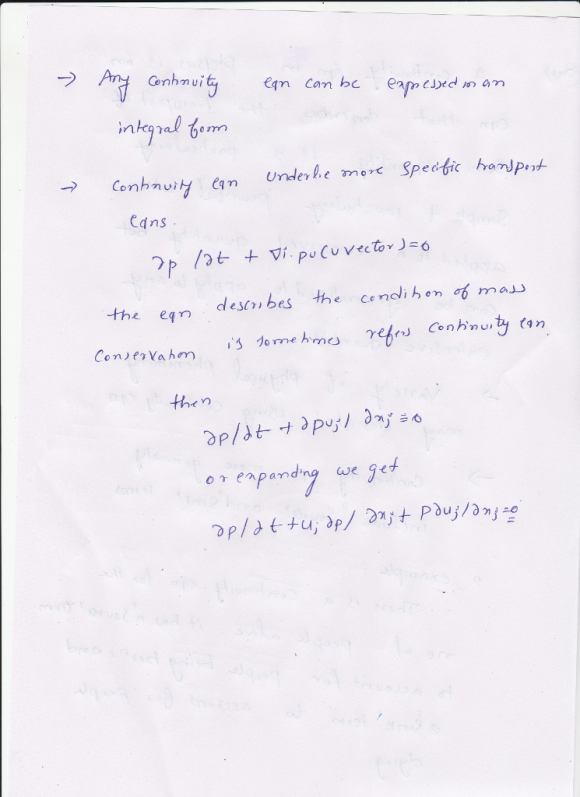 → Any continuity eqn can be expressed in an
integral form
→ Continuity eqn underlie more specific transport
eqns.
∂p /∂t + ∇i. pu (u vector) = 0
the eqn describes the condition of mass
conservation is sometimes refers continuity eqn.
then
∂p/∂t + ∂puj/ ∂xj = 0
or expanding we get
∂p/∂t + uj ∂p/ ∂xj + p∂uj/∂xj = 0